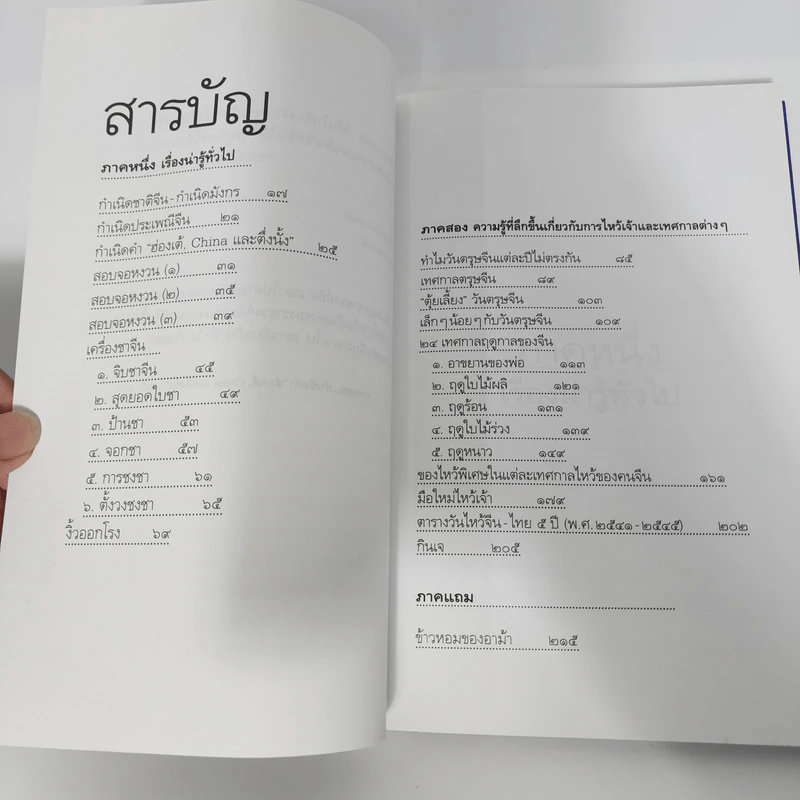 สารบัญ
ภาคหนึ่ง เรื่องน่ารู้ทั่วไป
กำเนิดชาติจีน - กำเนิดมังกร ๑๗
กำเนิดประเพณีจีน ๒๑
กำเนิดคำ "ฮ่องเต้, China และตึ่งนั้ง" ๒๕
สอบจอหงวน (๑) ๓๑
สอบจอหงวน (๒) ๓๕
สอบจอหงวน (๓) ๓๙
เครื่องชาจีน
๑. จิบชาจีน ๔๕
๒. สุดยอดใบชา ๔๙
๓. ป้านชา ๕๓
๔. จอกชา ๕๗
๕. การชงชา ๖๑
๖. ตั้งวงชงชา ๖๕
งิ้วออกโรง ๖๙
ภาคสอง ความรู้ที่ลึกขึ้นเกี่ยวกับการไหว้เจ้าและเทศกาลต่างๆ
ทำไมวันตรุษจีนแต่ละปีไม่ตรงกัน ๘๕
เทศกาลตรุษจีน ๘๙
"ตุ้ยเลี้ยง" วันตรุษจีน ๑๐๓
เล็กๆ น้อยๆ กับวันตรุษจีน ๑๐๙
๒๔ เทศกาลฤดูกาลของจีน
๑. อาขยานของพ่อ ๑๑๓
๒. ฤดูใบไม้ผลิ ๑๒๑
๓. ฤดูร้อน ๑๓๑
๔. ฤดูใบไม้ร่วง ๑๓๙
๕. ฤดูหนาว ๑๔๙
ของไหว้พิเศษในแต่ละเทศกาลไหว้ของคนจีน ๑๖๑
มือใหม่ไหว้เจ้า ๑๗๙
ตารางวันไหว้จีน - ไทย ๕ ปี (พ.ศ. ๒๕๔๑ - ๒๕๔๕) ๒๐๒
กินเจ ๒๐๕
ภาคแถม
ข้าวหอมของอาม้า ๒๑๕